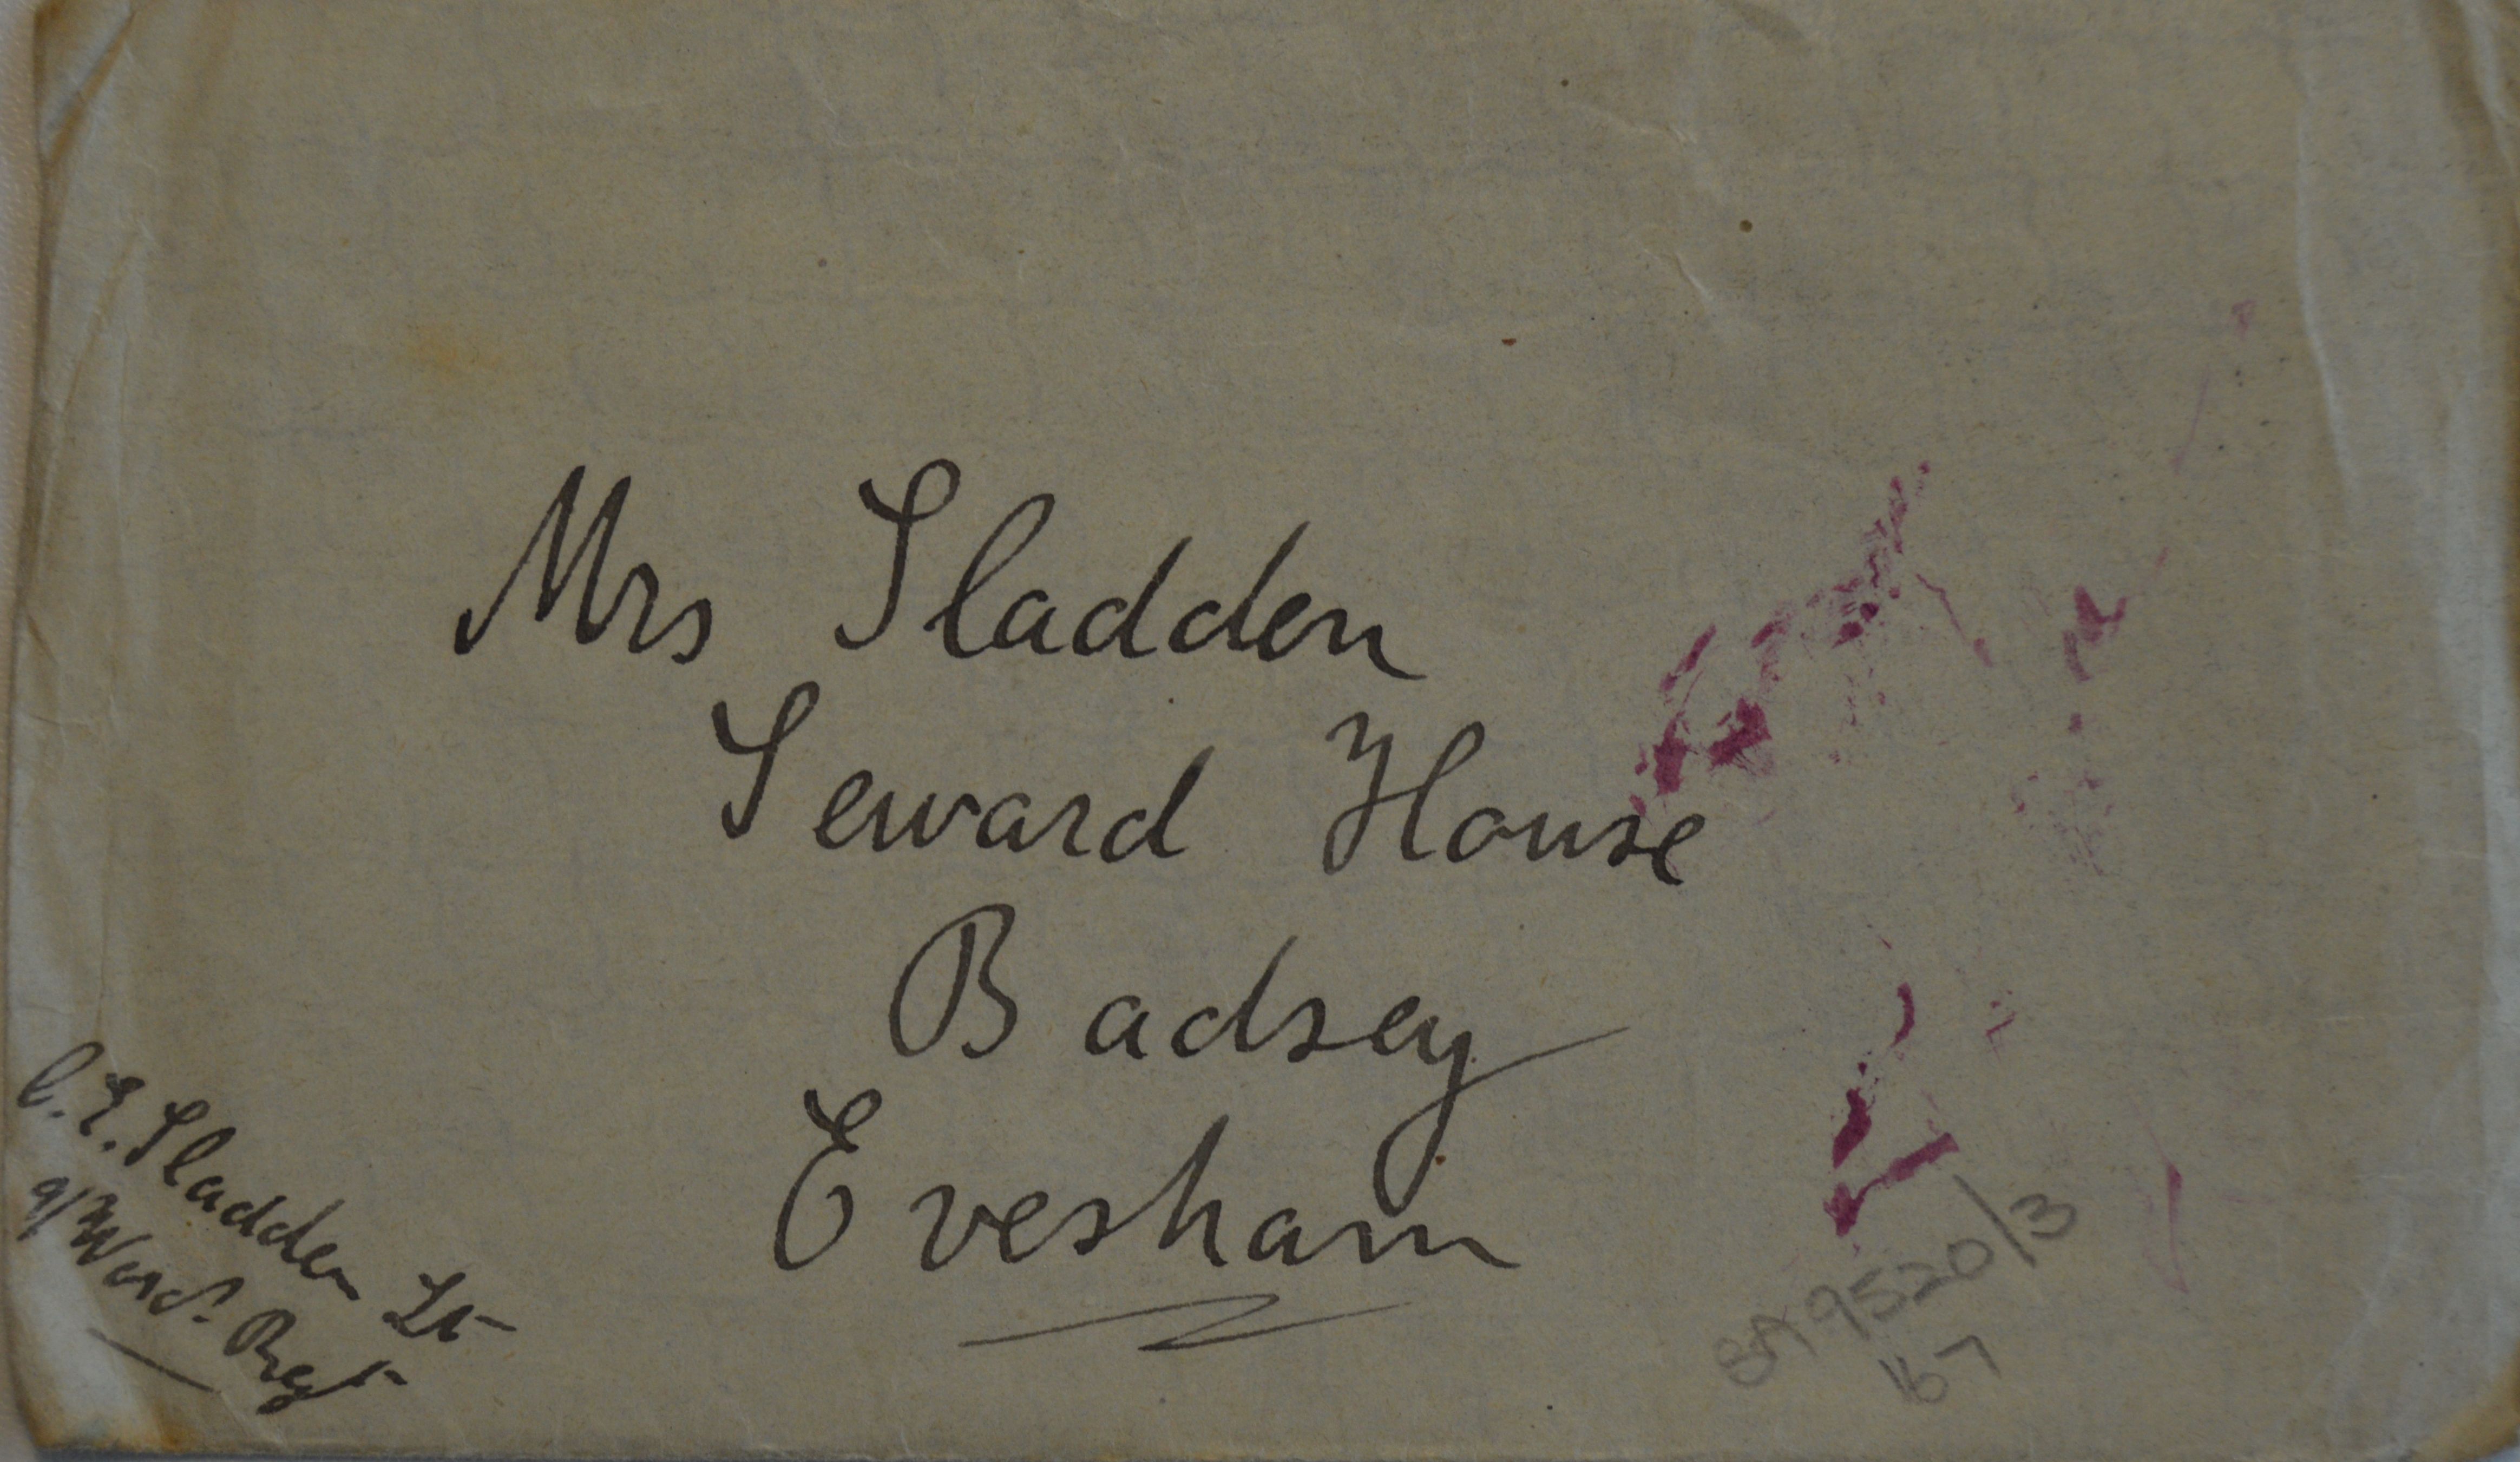 Mrs Sladden
Seward House
Badsey
Evesham
C. E. Sladden Lt
9/Worc. Regt
BA 9520/3
167